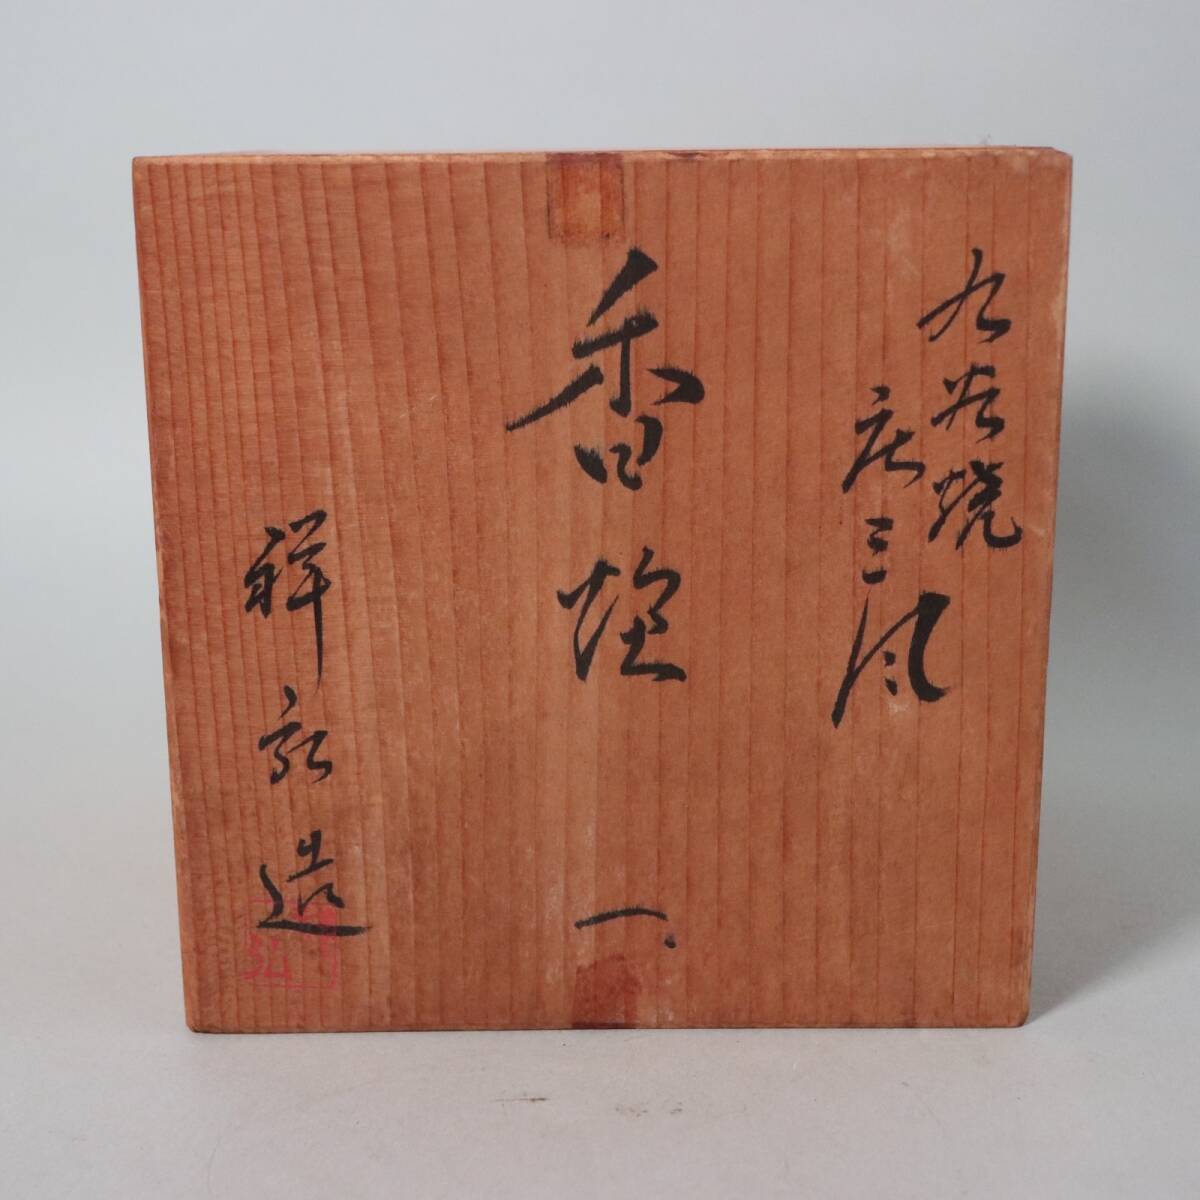 九谷焼
庄三風
香炉 一
祥弘造